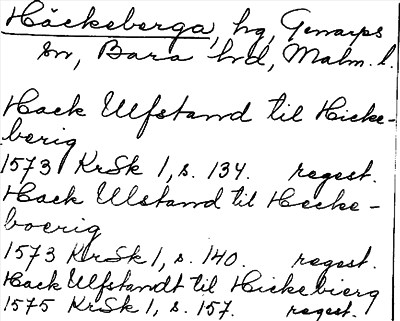 Häckeberga, hg, Genarps
sn, Bara hd, Malm. l.
Hack Ulfstand til Hicke-
berig
1573 KrSk 1, s. 134. regest.
Hack Ulstand til Hecke-
boerig
1573 KrSk 1, s. 140. regest.
Hack Ulfstandt til Hickebierg
1575 KrSk 1, s. 157. regest.